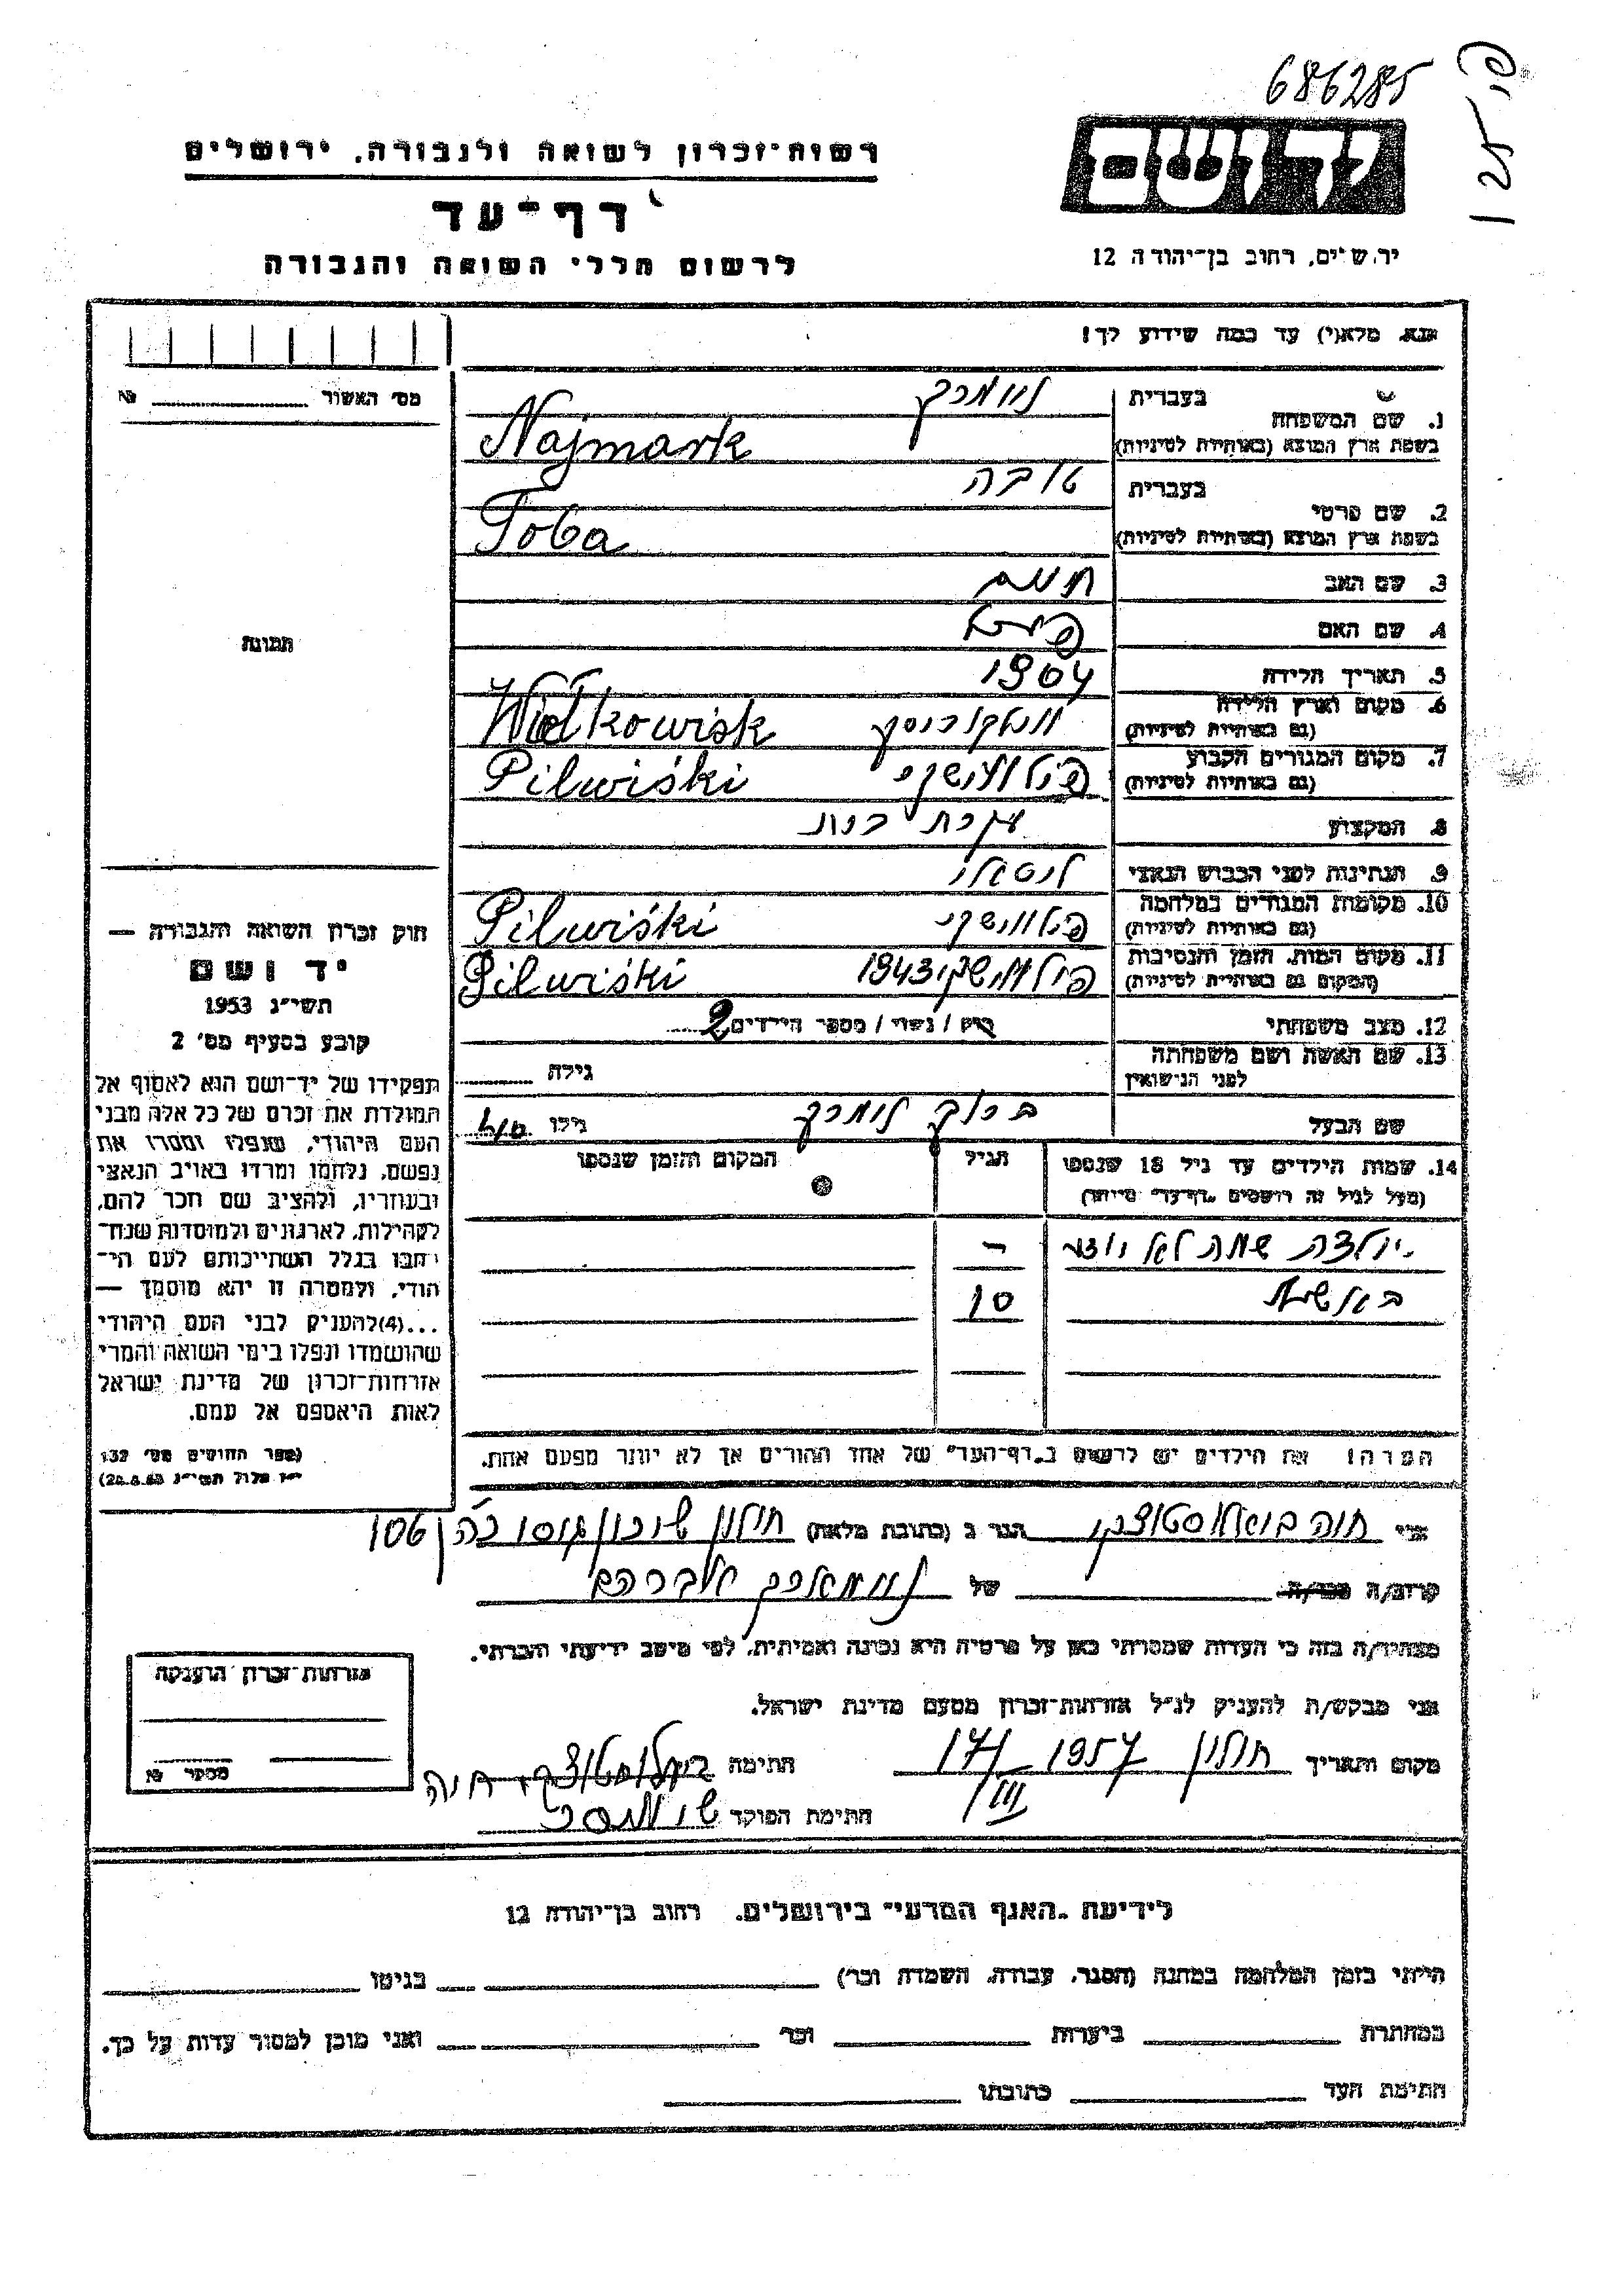 686285
פו 125
רשות־זכרון לשואה ולגבורה. ירושלים
יד ושם
דף־עד
ירושלים, רחוב בן־יהודה 12
לרשום חללי השואה והגבורה
אנא, מלא(י) עד כמה שידוע לך!
מס׳ האשור № 
1. שם המשפחה בעברית ניימרק
בשפת ארץ המוצא (באותיות לטיניות) Najmark
2. שם פרטי בעברית טובה
בשפת ארץ המוצא (באותיות לטיניות) Toba
3. שם האב חיים
4. שם האם
תמונה
5. תאריך הלידה 1904
6. מקום וארץ הלידה (גם באותיות לטיניות) Wiłkowisk
7. מקום המגורים הקבוע (גם באותיות לטיניות) פילווישקי Pilwiśki
8. המקצוע עקרת בית
9. הנתינות לפני הכבוש הנאצי ליטאי
10. מקומות המגורים במלחמה (גם באותיות לטיניות) פילווישקי Pilwiśki
11. מקום המות, הזמן והנסיבות (המקום גם באותיות לטיניות) פילווישקי 1943 Pilwiśki
12. מצב משפחתי רוק / נשוי / מספר הילדים 2
13. שם האשה ושם משפחתה לפני הנישואין גילה
שם הבעל ברוך ניימרק גילו
14. שמות הילדים עד גיל 18 שנספו הגיל המקום והזמן שנספו
(מעל לגיל זה רושמים „דף־עד״ מיוחד)
ילדה שמה לא ידוע –
10
הערה! את הילדים יש לרשום ב„דף־העד״ של אחד ההורים אך לא יותר מפעם אחת.
חוק זכרון השואה והגבורה —
יד ושם
תשי״ג 1953
קובע בסעיף מס׳ 2
תפקידו של יד־ושם הוא לאסוף אל
המולדת את זכרם של כל אלה מבני
העם היהודי, שנפלו ומסרו את
נפשם, נלחמו ומרדו באויב הנאצי
ובעוזריו, ולהציב שם וזכר להם,
לקהילות, לארגונים ולמוסדות שנח־
רבו בגלל השתייכותם לעם הי־
הודי, ולמטרה זו יהא מוסמך —
...(4) להעניק לבני העם היהודי
שהושמדו ונפלו בימי השואה והמרי
אזרחות־זכרון של מדינת ישראל
לאות היאספם אל עמם.
(ספר החוקים מס׳ 132
י״ז אלול תשי״ג 28.8.53)
אני חוה ביאלוסטוצקי הגר ב (כתובת מלאה) חולון שיכון 106
קרוב/ה מכר/ה של ניימארק אברהם
מצהיר/ה בזה כי העדות שמסרתי כאן על פרטיה היא נכונה ואמיתית, לפי מיטב ידיעתי והכרתי.
אני מבקש/ת להעניק לנ״ל אזרחות־זכרון מטעם מדינת ישראל.
מקום ותאריך חולון 17/III 1957 חתימה ביאלוסטוצקי חוה
חתימת הפוקד
אזרחות־זכרון הוענקה
מספר №
לידיעת „האגף המדעי״ בירושלים. רחוב בן־יהודה 12
הייתי בזמן המלחמה במחנה (הסגר, עבודה, השמדה וכו׳) בגיטו
במחתרת ביערות וכו׳ ואני מוכן למסור עדות על כך.
חתימת העד כתובתו